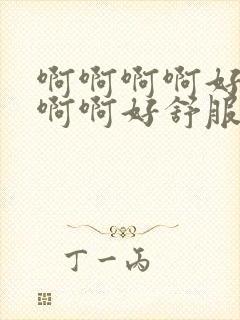 啊啊啊啊好
啊啊好舒服
丁一丙